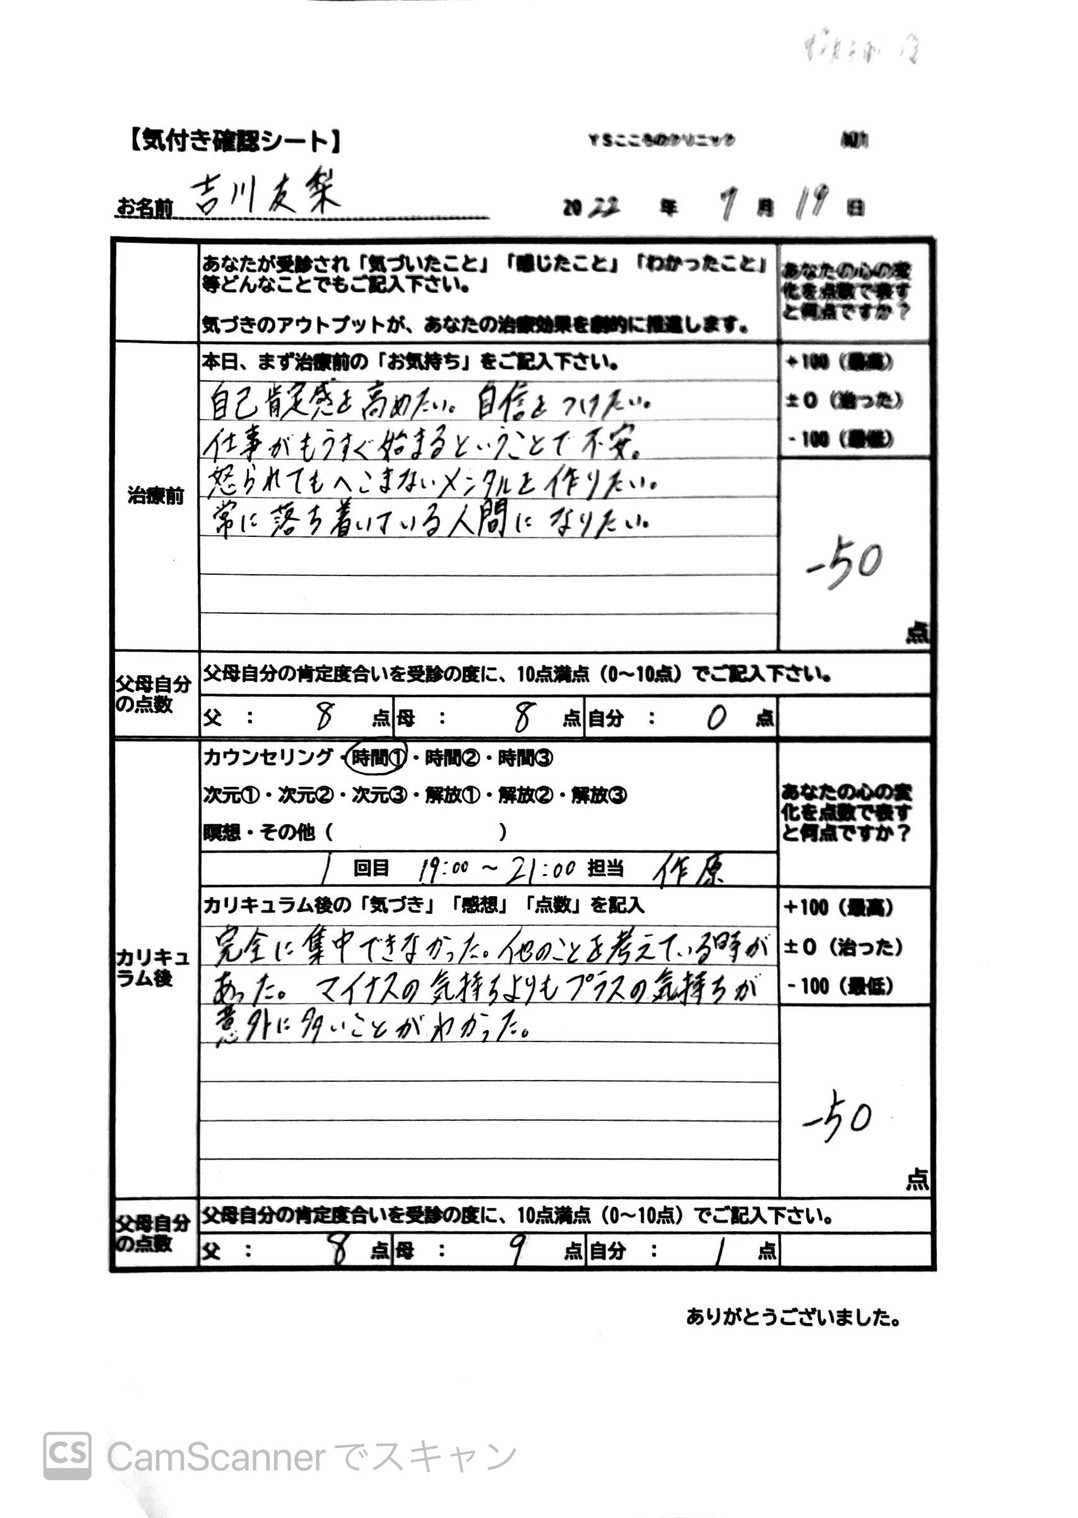 【気付き確認シート】 YSこころのクリニック
お名前 吉川友梨 2022 年 7 月 19 日
あなたが受診され「気づいたこと」「感じたこと」「わかったこと」
等どんなことでもご記入下さい。
気づきのアウトプットが、あなたの治療効果を劇的に推進します。
あなたの心の変
化を点数で表す
と何点ですか？
治療前
本日、まず治療前の「お気持ち」をご記入下さい。
自己肯定感を高めたい。自信をつけたい。
仕事がもうすぐ始まるということで不安。
怒られてもへこまないメンタルを作りたい。
常に落ち着いている人間になりたい。
+100（最高）
±0（治った）
-100（最低）
-50
点
父母自分
の点数
父母自分の肯定度合いを受診の度に、10点満点（0～10点）でご記入下さい。
父 ： 8 点 母 ： 8 点 自分 ： 0 点
カリキュ
ラム後
カウンセリング・時間①・時間②・時間③
次元①・次元②・次元③・解放①・解放②・解放③
瞑想・その他（ ）
1 回目 19:00 ～ 21:00 担当 作原
あなたの心の変
化を点数で表す
と何点ですか？
カリキュラム後の「気づき」「感想」「点数」を記入
完全に集中できなかった。他のことを考えている時が
あった。マイナスの気持ちよりもプラスの気持ちが
意外に多いことがわかった。
+100（最高）
±0（治った）
-100（最低）
-50
点
父母自分
の点数
父母自分の肯定度合いを受診の度に、10点満点（0～10点）でご記入下さい。
父 ： 8 点 母 ： 9 点 自分 ： 1 点
ありがとうございました。
CS CamScannerでスキャン